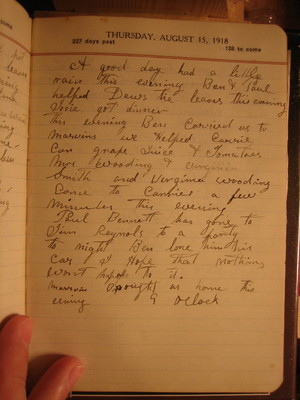 THURSDAY, AUGUST 15, 1918
227 days past
138 to come
A good day had a little
rain this evening Ben & Paul
helped Dews tie leaves this evening
Josie got dinner
This evening Ben Carried us to
Marvins we Helped Carrie
Can grape Juice & Tomatoes
Mrs Wooding & Virginia
Smith and Virginia Wooding
Came to Carries a few
Minutes this evening
Paul Bennett has gone to
Jim Reynols to a party
to night Ben lone him his
Car & I Hope that nothing
worst to it.
Marvin us home this
evning 9 O'Clock